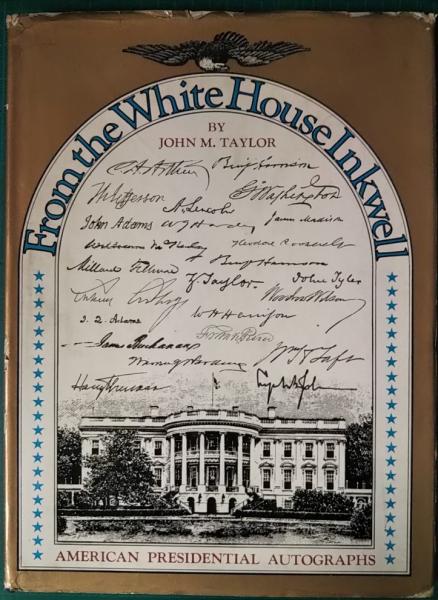 From the White House Inkwell
BY
JOHN M. TAYLOR
C. A. Arthur Benj Harrison
Th Jefferson G Washington
A. Lincoln
John Adams W G Harding James Madison
William McKinley Theodore Roosevelt
Benj Harrison
Millard Fillmore Z Taylor John Tyler
Woodrow Wilson
J. Q. Adams W H Harrison
James Buchanan Wm H Taft
Warren G Harding
Harry Truman
AMERICAN PRESIDENTIAL AUTOGRAPHS